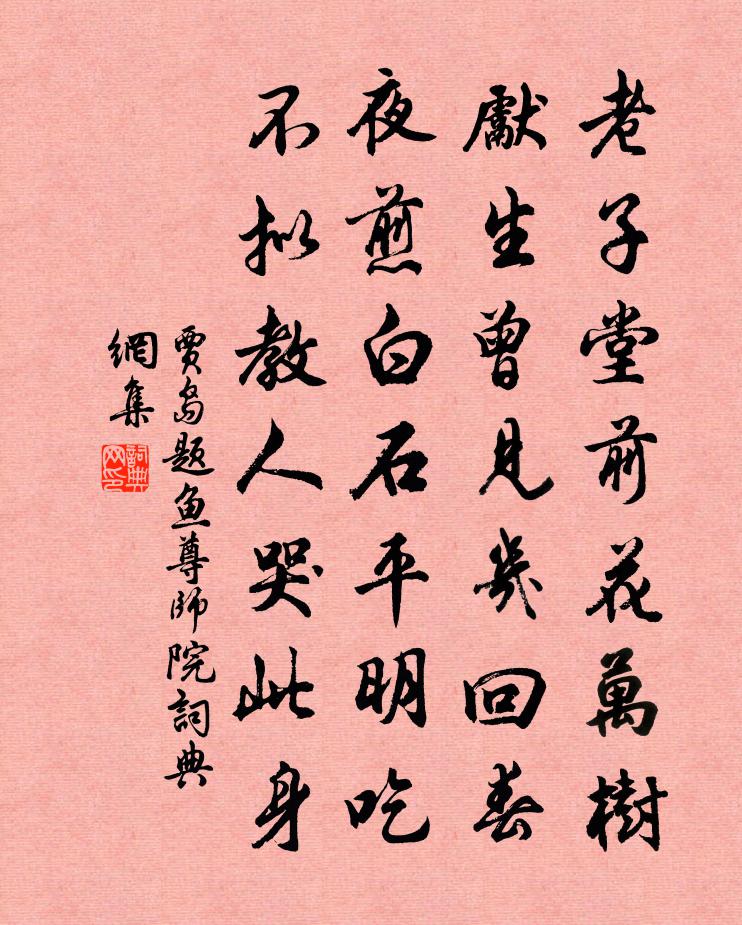 老子堂前花萬樹
獻生曾見幾回春
夜煎白石平明吃
不拟教人哭此身
賈島题鱼尊師院詞典
網集
詞典網印